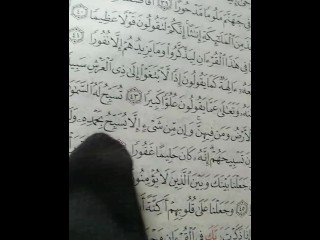 فِي جَهَنَّمَ مَلُومًا مَّدْحُورًا ٣٩
مِنَ ٱلْمَلَٰٓئِكَةِ إِنَٰثًا إِنَّكُمْ لَتَقُولُونَ قَوْلًا عَظِيمًا ٤٠
فِي هَٰذَا ٱلْقُرْءَانِ لِيَذَّكَّرُوا۟ وَمَا يَزِيدُهُمْ إِلَّا نُفُورًا ٤١
ءَالِهَةٌ كَمَا يَقُولُونَ إِذًا لَّٱبْتَغَوْا۟ إِلَىٰ ذِي ٱلْعَرْشِ سَبِيلًا
وَتَعَٰلَىٰ عَمَّا يَقُولُونَ عُلُوًّا كَبِيرًا ٤٣ تُسَبِّحُ لَهُ ٱلسَّمَٰوَٰتُ
وَٱلْأَرْضُ وَمَن فِيهِنَّ وَإِن مِّن شَيْءٍ إِلَّا يُسَبِّحُ بِحَمْدِهِۦ
تَسْبِيحَهُمْ إِنَّهُۥ كَانَ حَلِيمًا غَفُورًا
جَعَلْنَا بَيْنَكَ وَبَيْنَ ٱلَّذِينَ لَا يُؤْمِنُونَ
٤٥ وَجَعَلْنَا عَلَىٰ قُلُوبِهِمْ أَكِنَّةً
ذَكَرْتَ رَبَّكَ فِي ٱلْقُرْءَانِ